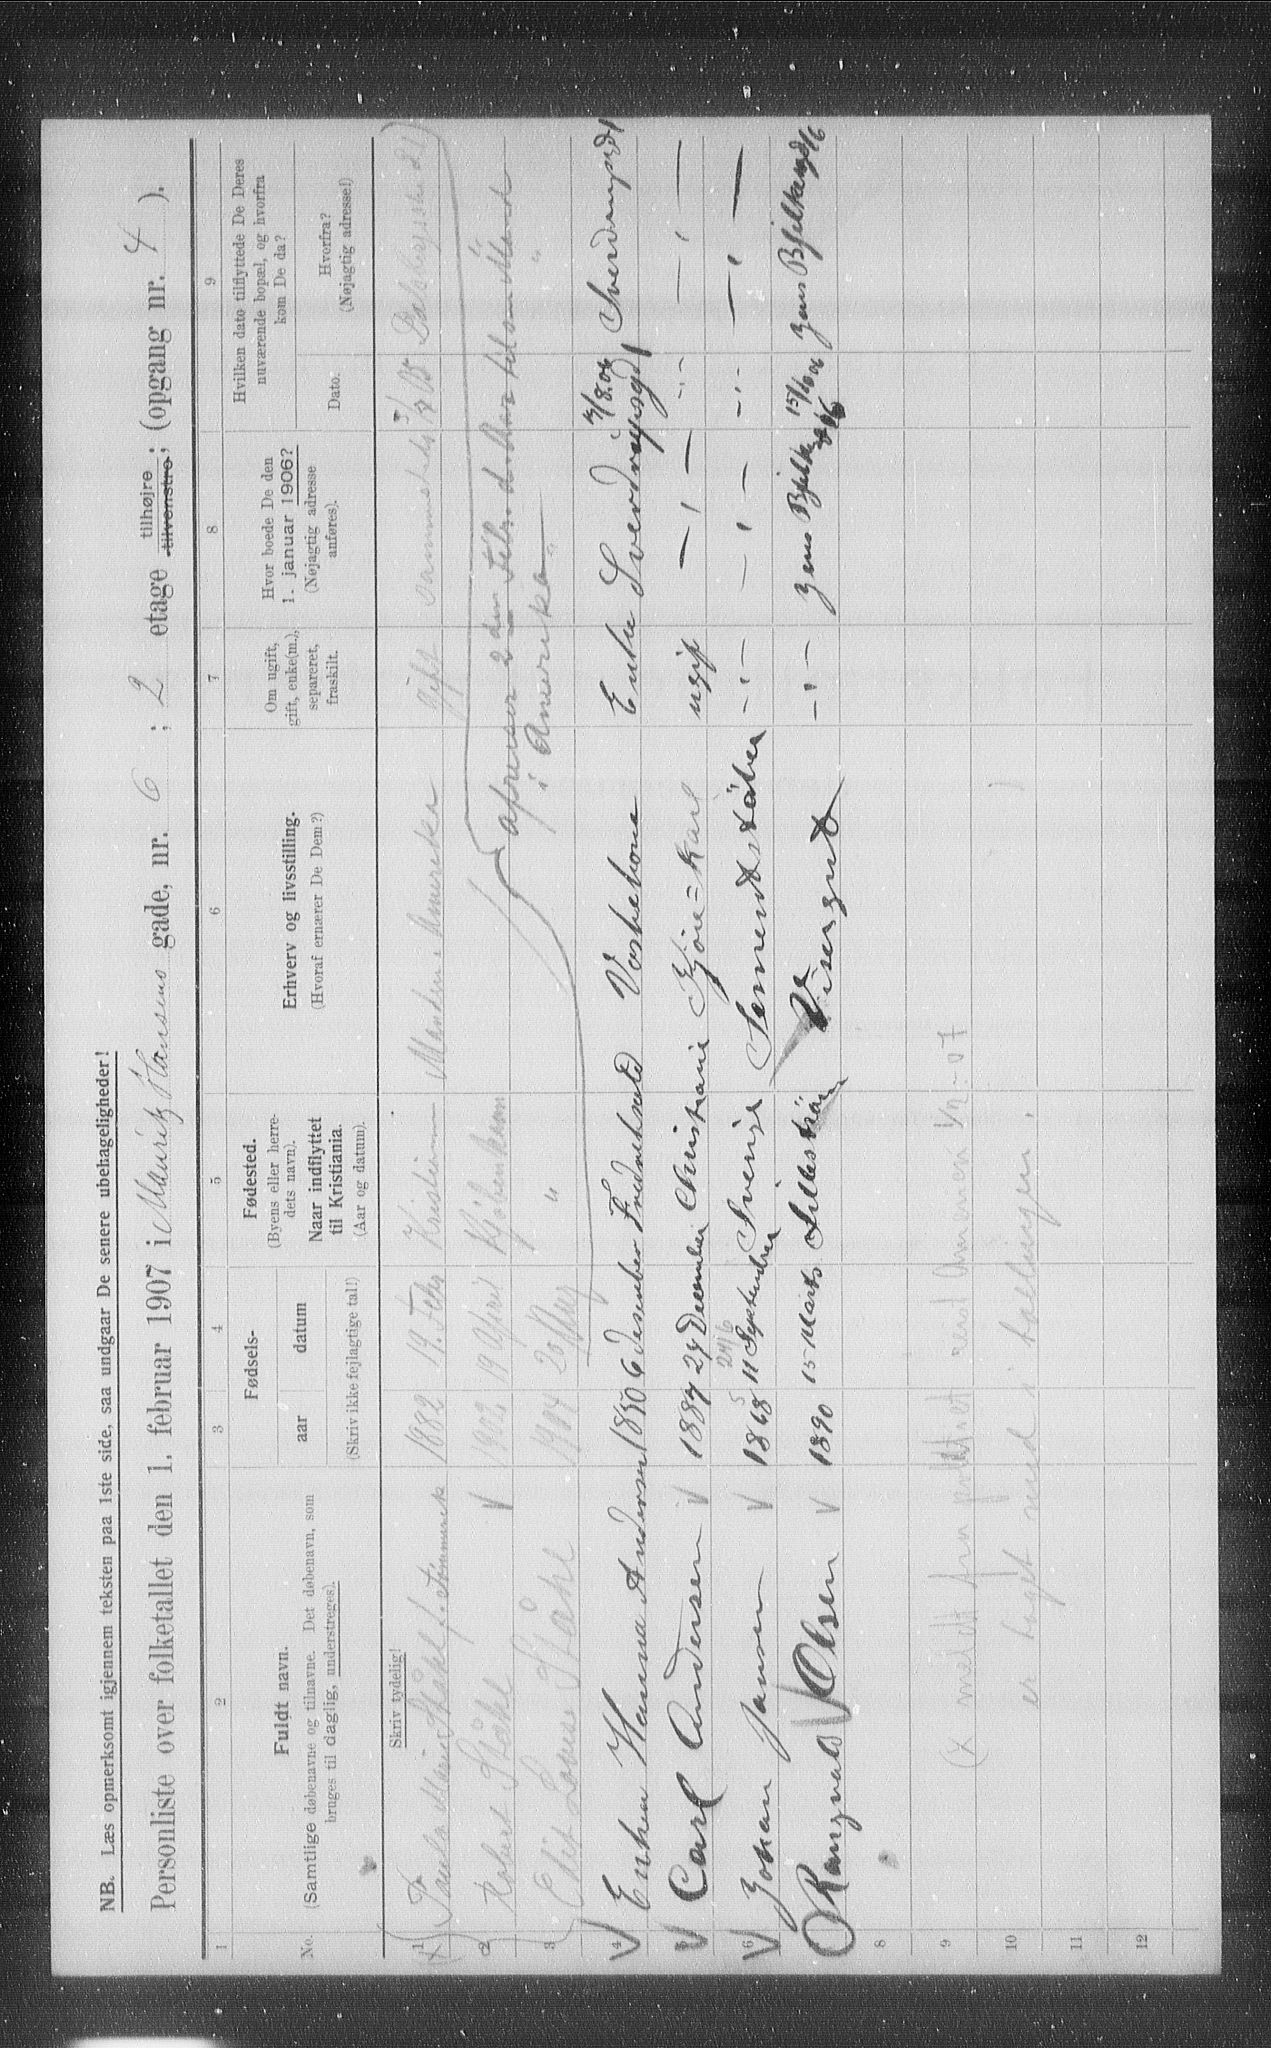 NB. Læs opmerksomt igjennem teksten paa 1ste side, saa undgaar De senere ubehageligheder!
Personliste over folketallet den 1. februar 1907 i Mauritz Hansens gade, nr. 6 ; 2 etage tilhøjre tilvenstre; (opgang nr. 4 ).
1 2 3 4 5 6 7 8 9
No.
Fuldt navn.
(Samtlige døbenavne og tilnavne. Det døbenavn, som
bruges til daglig, understreges).
Fødsels-
aar
datum
(Skriv ikke fejlagtige tal!)
Fødested.
(Byens eller herre-
dets navn).
Naar indflyttet
til Kristiania.
(Aar og datum).
Erhverv og livsstilling.
(Hvoraf ernærer De Dem?)
Om ugift,
gift, enke(m.),
separeret,
fraskilt.
Hvor boede De den
1. januar 1906?
(Nøjagtig adresse
anføres).
Hvilken dato tilflyttede De Deres
nuværende bopæl, og hvorfra
kom De da?
Dato.
Hvorfra?
(Nøjagtig adresse!)
Skriv tydelig!
(x 1 Marie Ståhl f. 1882 19. Febr Kristiania Manden i Amerika gift
2 Robert Ståhl V 1902 19 April Kjøbenhavn
3 Ståhl 1904 20 Aug "
afreiser 2den Febr.
i Amerika
V 4 Enken Hanna Andersen 1850 6 Desember Fredrikshald Vaskekone Enke Sverdrupsgd 1 8.06 Sverdrupsgd 1
V 5 Carl Andersen V 1887 29 December Christiania Kjøre=Karl ugift — " —
V 6 Johan Jansen V 1868 11 September Sverige Sementstøber — " —
24/6
Rangvald Olsen V 1890 15 Marts Lillestrøm Visergut — " — Jens Bjelkesgd 16 15/10 06 Jens Bjelkesgd 16
8
9
(x meldt fra Amerika 1/2-07
10
er taget med i tællingen.
11
12